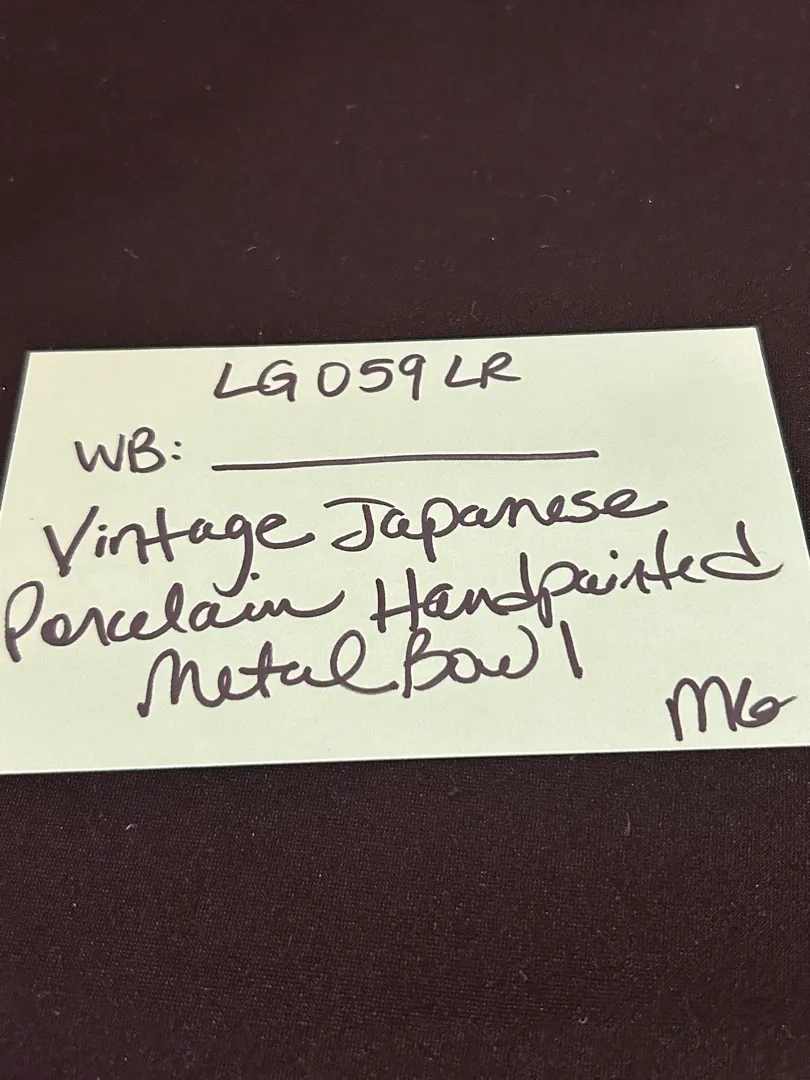 LG059LR
WB: __________
Vintage Japanese
Porcelain Handpainted
Metal Bowl
MG